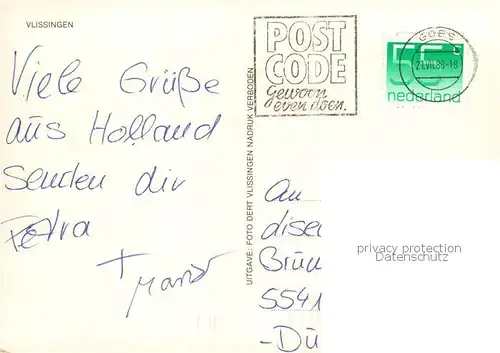 VLISSINGEN
Viele Grüße
aus Holland
senden dir
Petra
+
POST
CODE
Gewoon
even doen.
GOES
21.VII.88-18
55
nederland
UITGAVE: FOTO DERT VLISSINGEN NADRUK VERBODEN
An
Brün
5541
-Dü
privacy protection
Datenschutz